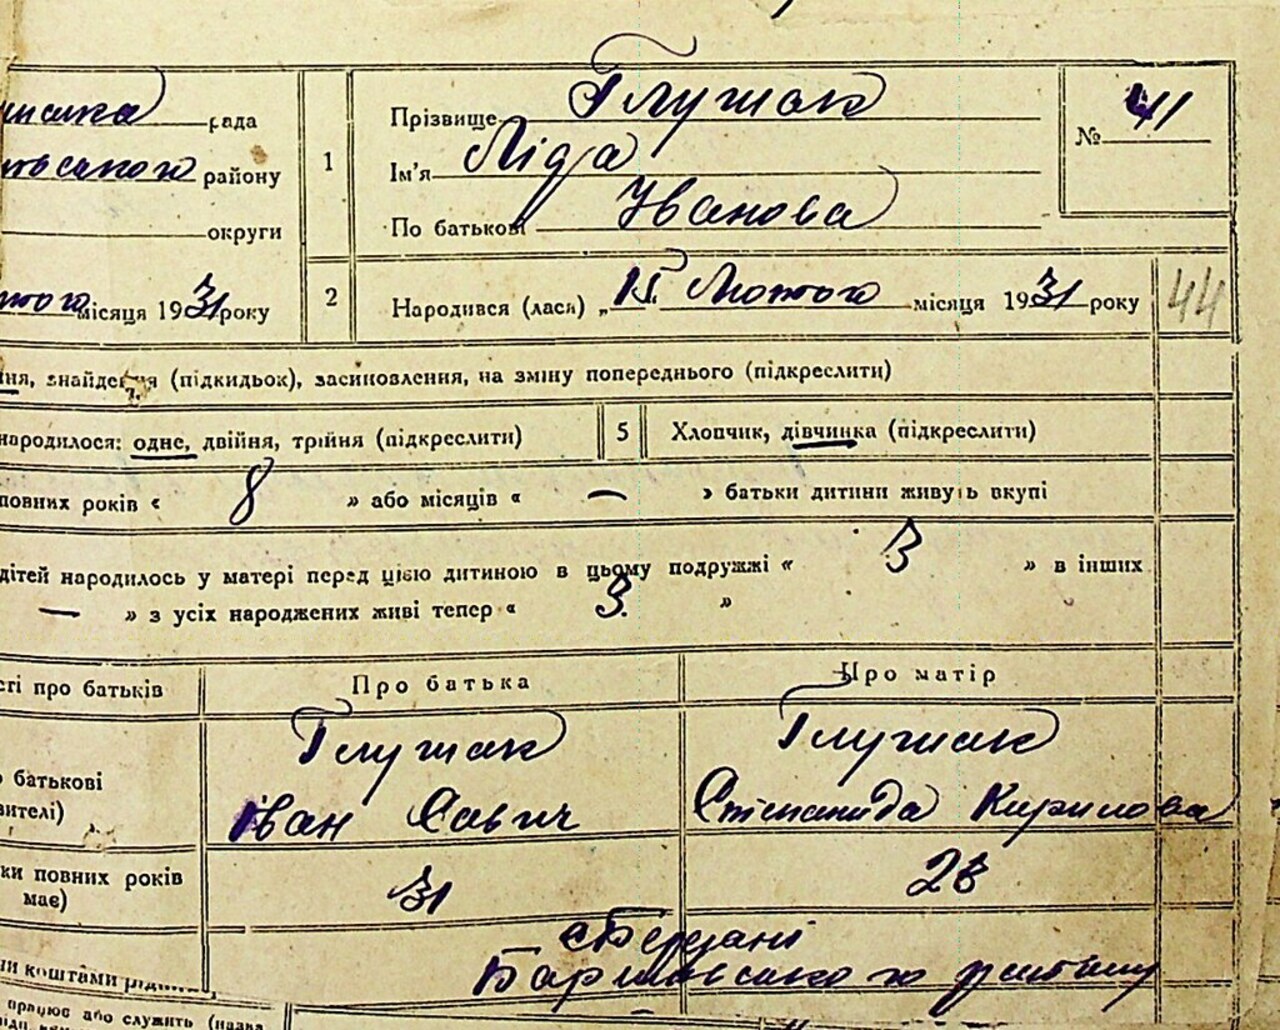 рада
району
округи
місяця 1931 року
1
Прізвище Глушак
Ім'я Ліда
По батькові Іванова
№ 41
2
Народився (лася) „15. Лютого місяця 1931 року
44
ня, знайдення (підкидьок), засиновлення, на зміну попереднього (підкреслити)
народилося: одне, двійня, трійня (підкреслити)
5
Хлопчик, дівчинка (підкреслити)
повних років « 8 » або місяців « — » батьки дитини живуть вкупі
дітей народилось у матері перед цією дитиною в цьому подружжі « 3 » в інших
— » з усіх народжених живі тепер « 3. »
сті про батьків
Про батька
Про матір
Глушак
Глушак
батькові
вителі)
Іван Савич
Степанида Кирилова
ки повних років
має)
31
28
с Бержані
ми коштами
працює або служить (назва